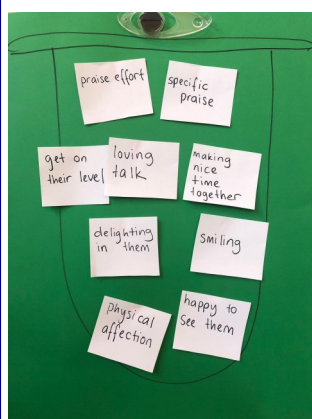 praise effort
specific
praise
get on
their level
loving
talk
making
nice
time
together
delighting
in them
smiling
physical
affection
happy to
see them